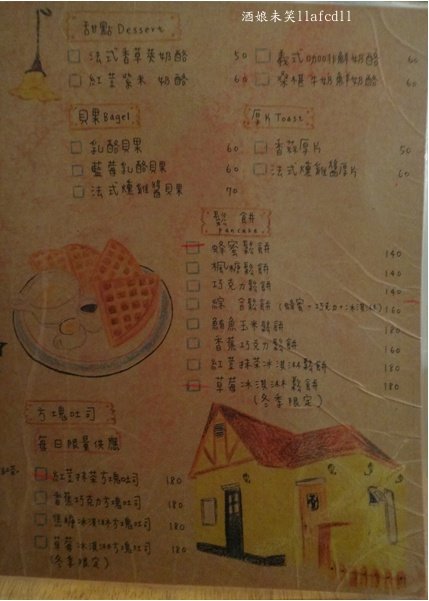 酒娘未笑llafcdll
甜點 Dessert
法式香草莢奶酪 50
紅荳紫米奶酪 60
義式咖啡鮮奶酪 60
桑椹牛奶鮮奶酪 60
貝果Bagel
乳酪貝果 60
藍莓乳酪貝果 60
法式燻雞醬貝果 70
厚片Toast
香蒜厚片 50
法式燻雞醬厚片 60
鬆餅
pancake
蜂蜜鬆餅 140
楓糖鬆餅 140
巧克力鬆餅 140
綜合鬆餅 (蜂蜜+巧克力+冰淇淋) 160
鮪魚玉米鬆餅 180
香蕉巧克力鬆餅 160
紅荳抹茶冰淇淋鬆餅 180
草莓冰淇淋鬆餅 180
(冬季限定)
方塊吐司
每日限量供應
紅荳抹茶方塊吐司 180
香蕉巧克力方塊吐司 180
焦糖冰淇淋方塊吐司 180
草莓冰淇淋方塊吐司 180
(冬季限定)